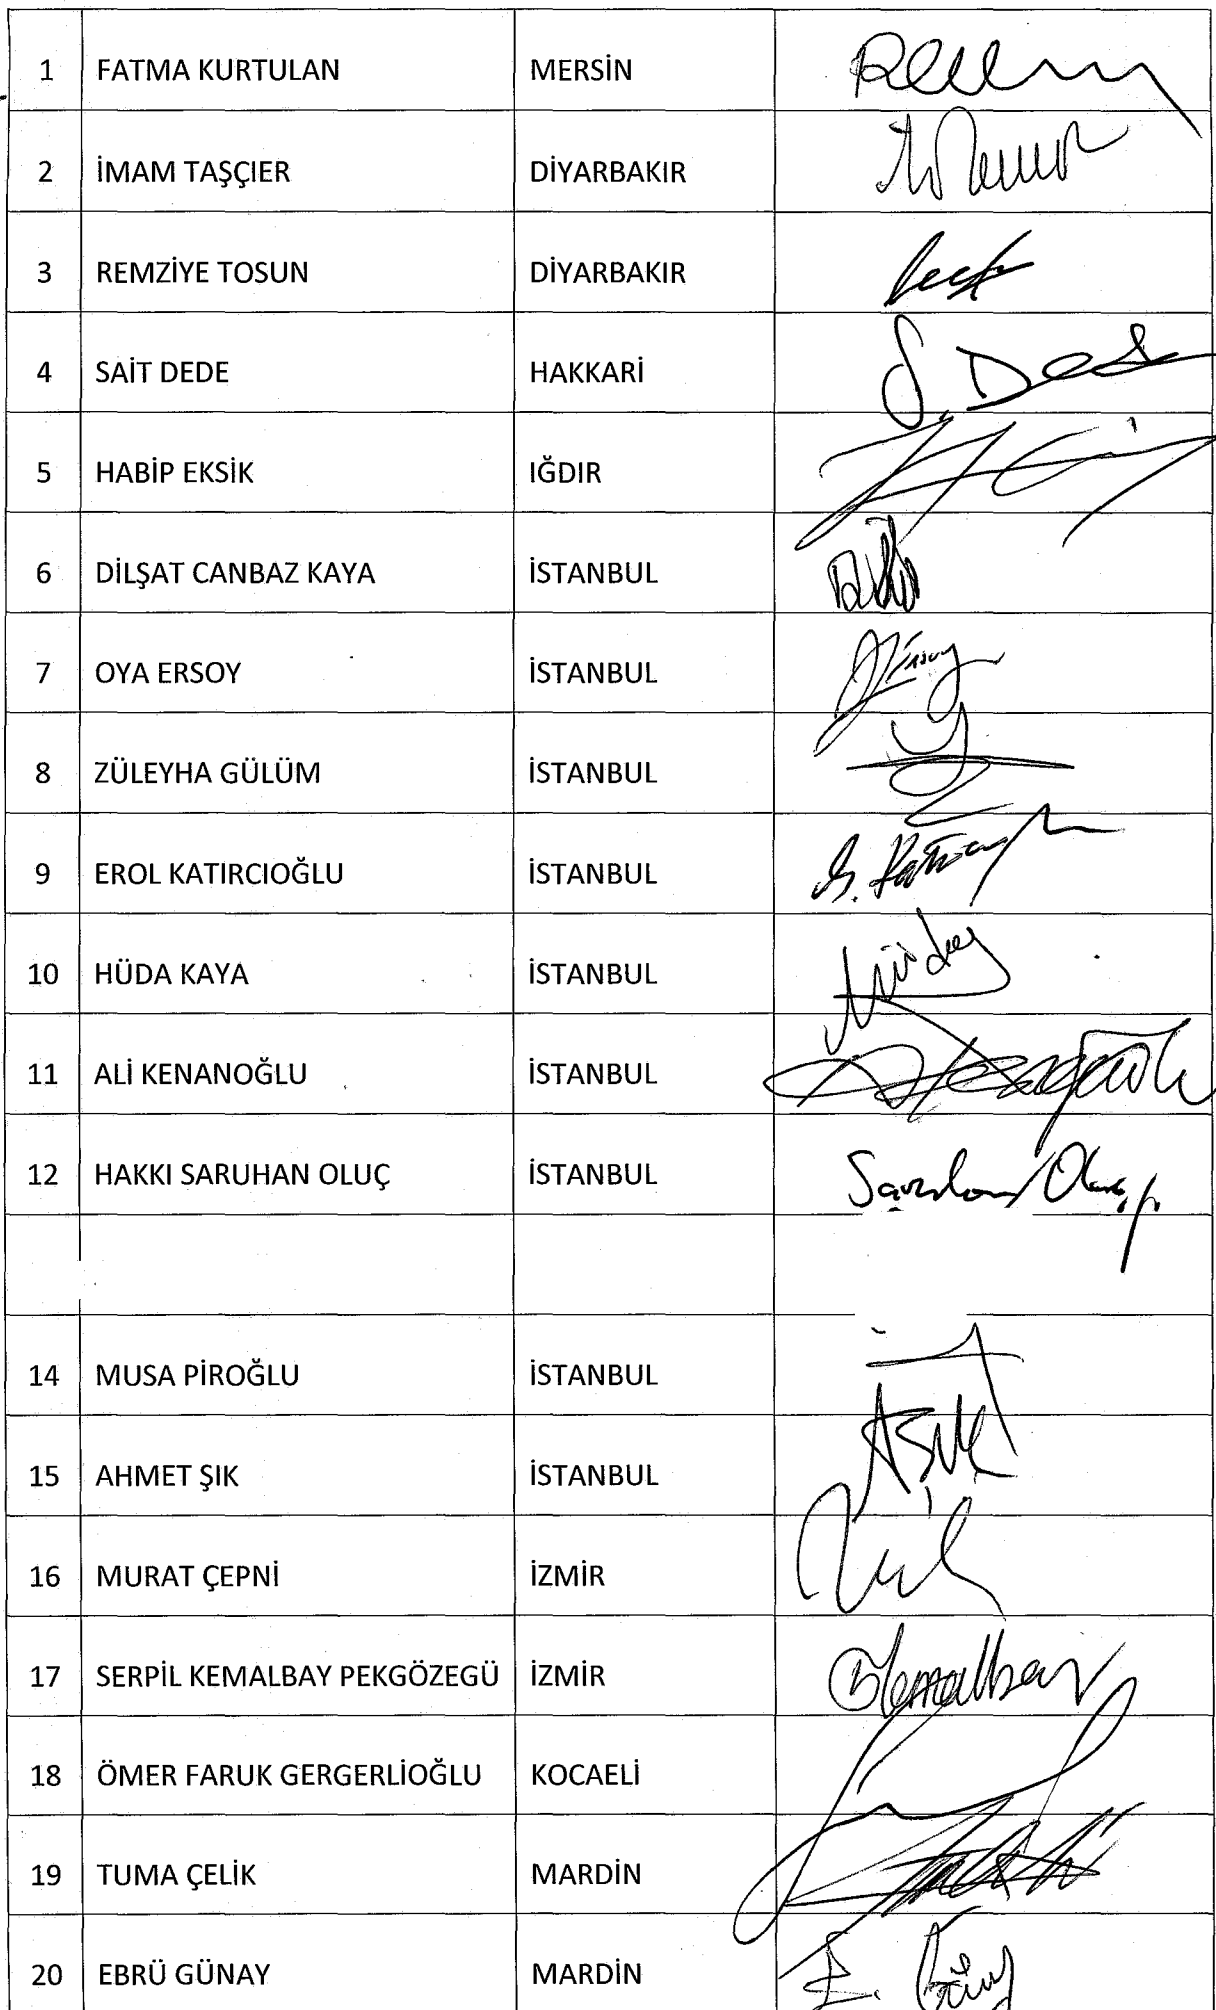 1 FATMA KURTULAN MERSİN
2 İMAM TAŞÇIER DİYARBAKIR
3 REMZİYE TOSUN DİYARBAKIR
4 SAİT DEDE HAKKARİ S. Dede
5 HABİP EKSİK IĞDIR
6 DİLŞAT CANBAZ KAYA İSTANBUL
7 OYA ERSOY İSTANBUL
8 ZÜLEYHA GÜLÜM İSTANBUL
9 EROL KATIRCIOĞLU İSTANBUL
10 HÜDA KAYA İSTANBUL
11 ALİ KENANOĞLU İSTANBUL
12 HAKKI SARUHAN OLUÇ İSTANBUL Saruhan Oluç
14 MUSA PİROĞLU İSTANBUL
15 AHMET ŞIK İSTANBUL
16 MURAT ÇEPNİ İZMİR
17 SERPİL KEMALBAY PEKGÖZEGÜ İZMİR
18 ÖMER FARUK GERGERLİOĞLU KOCAELİ
19 TUMA ÇELİK MARDİN
20 EBRÜ GÜNAY MARDİN